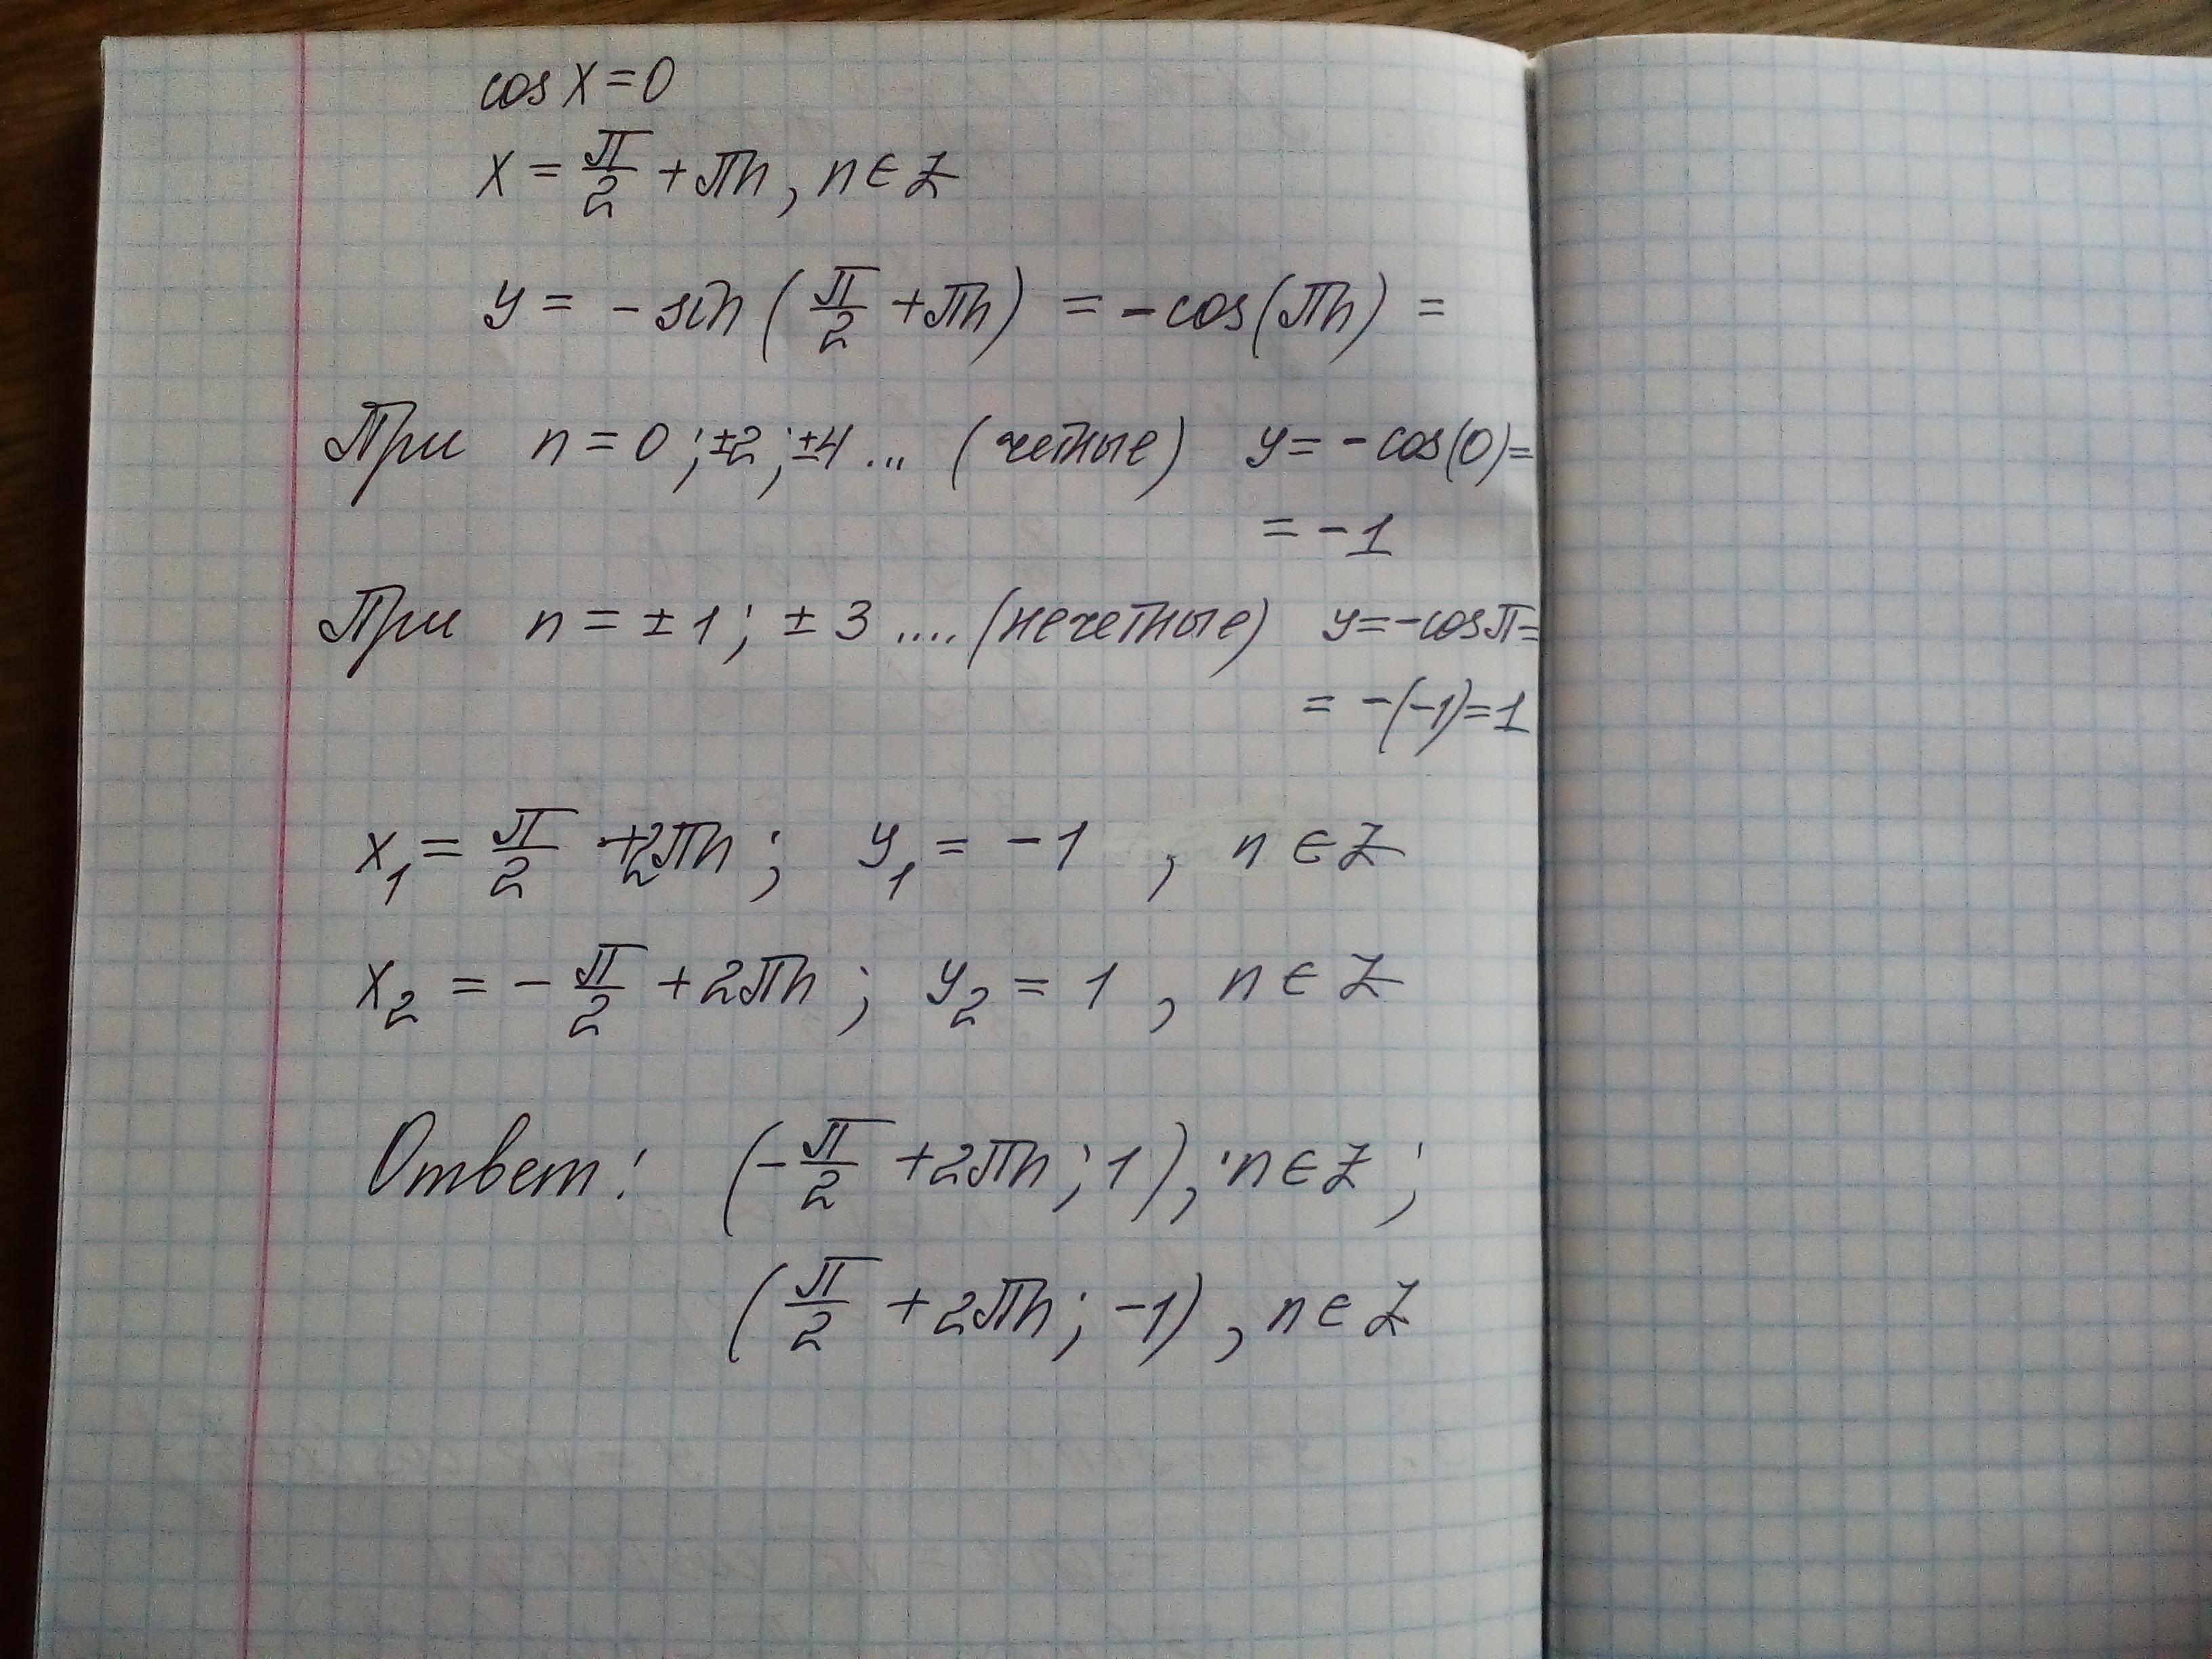 cos x = 0
x = π/2 + πn, n ∈ Z
y = - sin (π/2 + πn) = - cos (πn) =
При n = 0; ±2; ±4 ... (четные) y = - cos(0) =
= -1
При n = ±1; ±3 .... (нечетные) y = - cos π =
= -(-1) = 1
x₁ = π/2 + 2πn; y₁ = -1, n ∈ Z
x₂ = - π/2 + 2πn; y₂ = 1, n ∈ Z
Ответ: (- π/2 + 2πn; 1), n ∈ Z;
(π/2 + 2πn; -1), n ∈ Z